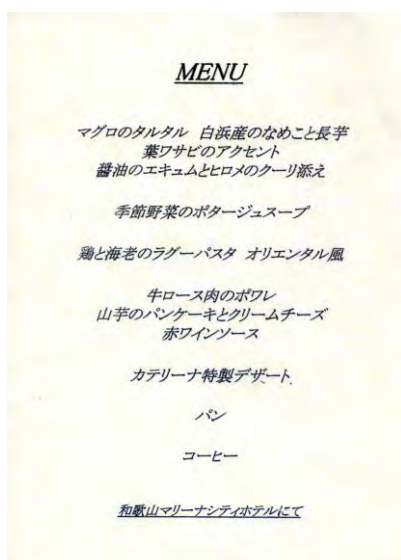 MENU
マグロのタルタル　白浜産のなめこと長芋
葉ワサビのアクセント
醤油のエキュムとヒロメのクーリ添え
季節野菜のポタージュスープ
鶏と海老のラグーパスタ　オリエンタル風
牛ロース肉のポワレ
山芋のパンケーキとクリームチーズ
赤ワインソース
カテリーナ特製デザート
パン
コーヒー
和歌山マリーナシティホテルにて